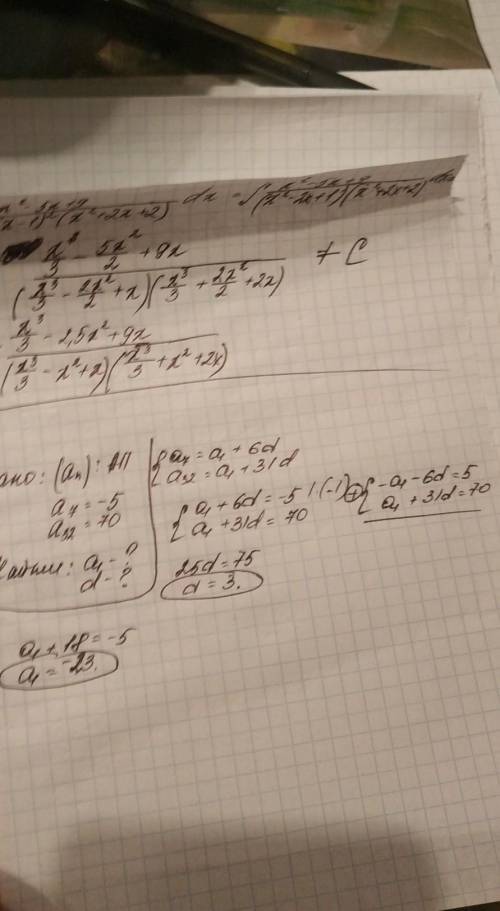 (x-1)²(x²+2x+2) dx = ∫ (x²-2x+1)(x²+2x+2) dx
x³/3 - 5x²/2 + 9x
(x³/3 - 2x²/2 + x)(x³/3 + 2x²/2 + 2x) + C
x³/3 - 2,5x² + 9x
(x³/3 - x² + x)(x³/3 + x² + 2x)
ано: (aₙ): АП
a₇ = -5
a₃₂ = 70
Найти: a₁ - ?
d - ?
{ a₇ = a₁ + 6d
a₃₂ = a₁ + 31d
{ a₁ + 6d = -5 | (-1)
a₁ + 31d = 70
⊕ { -a₁ - 6d = 5
a₁ + 31d = 70
25d = 75
d = 3.
a₁ + 18 = -5
a₁ = -23.